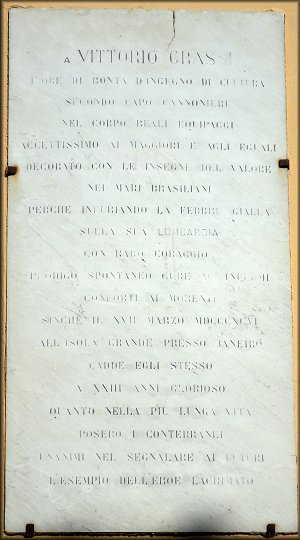 A VITTORIO GRASSI
FIORE DI BONTA D'INGEGNO DI CULTURA
SECONDO CAPO CANNONIERE
NEL CORPO REALI EQUIPAGGI
ACCETTISSIMO AI MAGGIORI E AGLI EGUALI
DECORATO CON LE INSEGNE DEL VALORE
NEI MARI BRASILIANI
PERCHE INFURIANDO LA FEBBRE GIALLA
SULLA SUA LOMBARDIA
CON RARO CORAGGIO
PRODIGO SPONTANEO CURE AGL'INFERMI
CONFORTI AI MORENTI
SINCHE IL XVII MARZO
ALL'ISOLA GRANDE PRESSO JANEIRO
CADDE EGLI STESSO
A XXIII ANNI GLORIOSO
QUANTO NELLA PIU LUNGA VITA
POSERO I CONTERRANEI
UNANIMI NEL SEGNALARE AI FUTURI
L'ESEMPIO DELL'EROE LACRIMATO